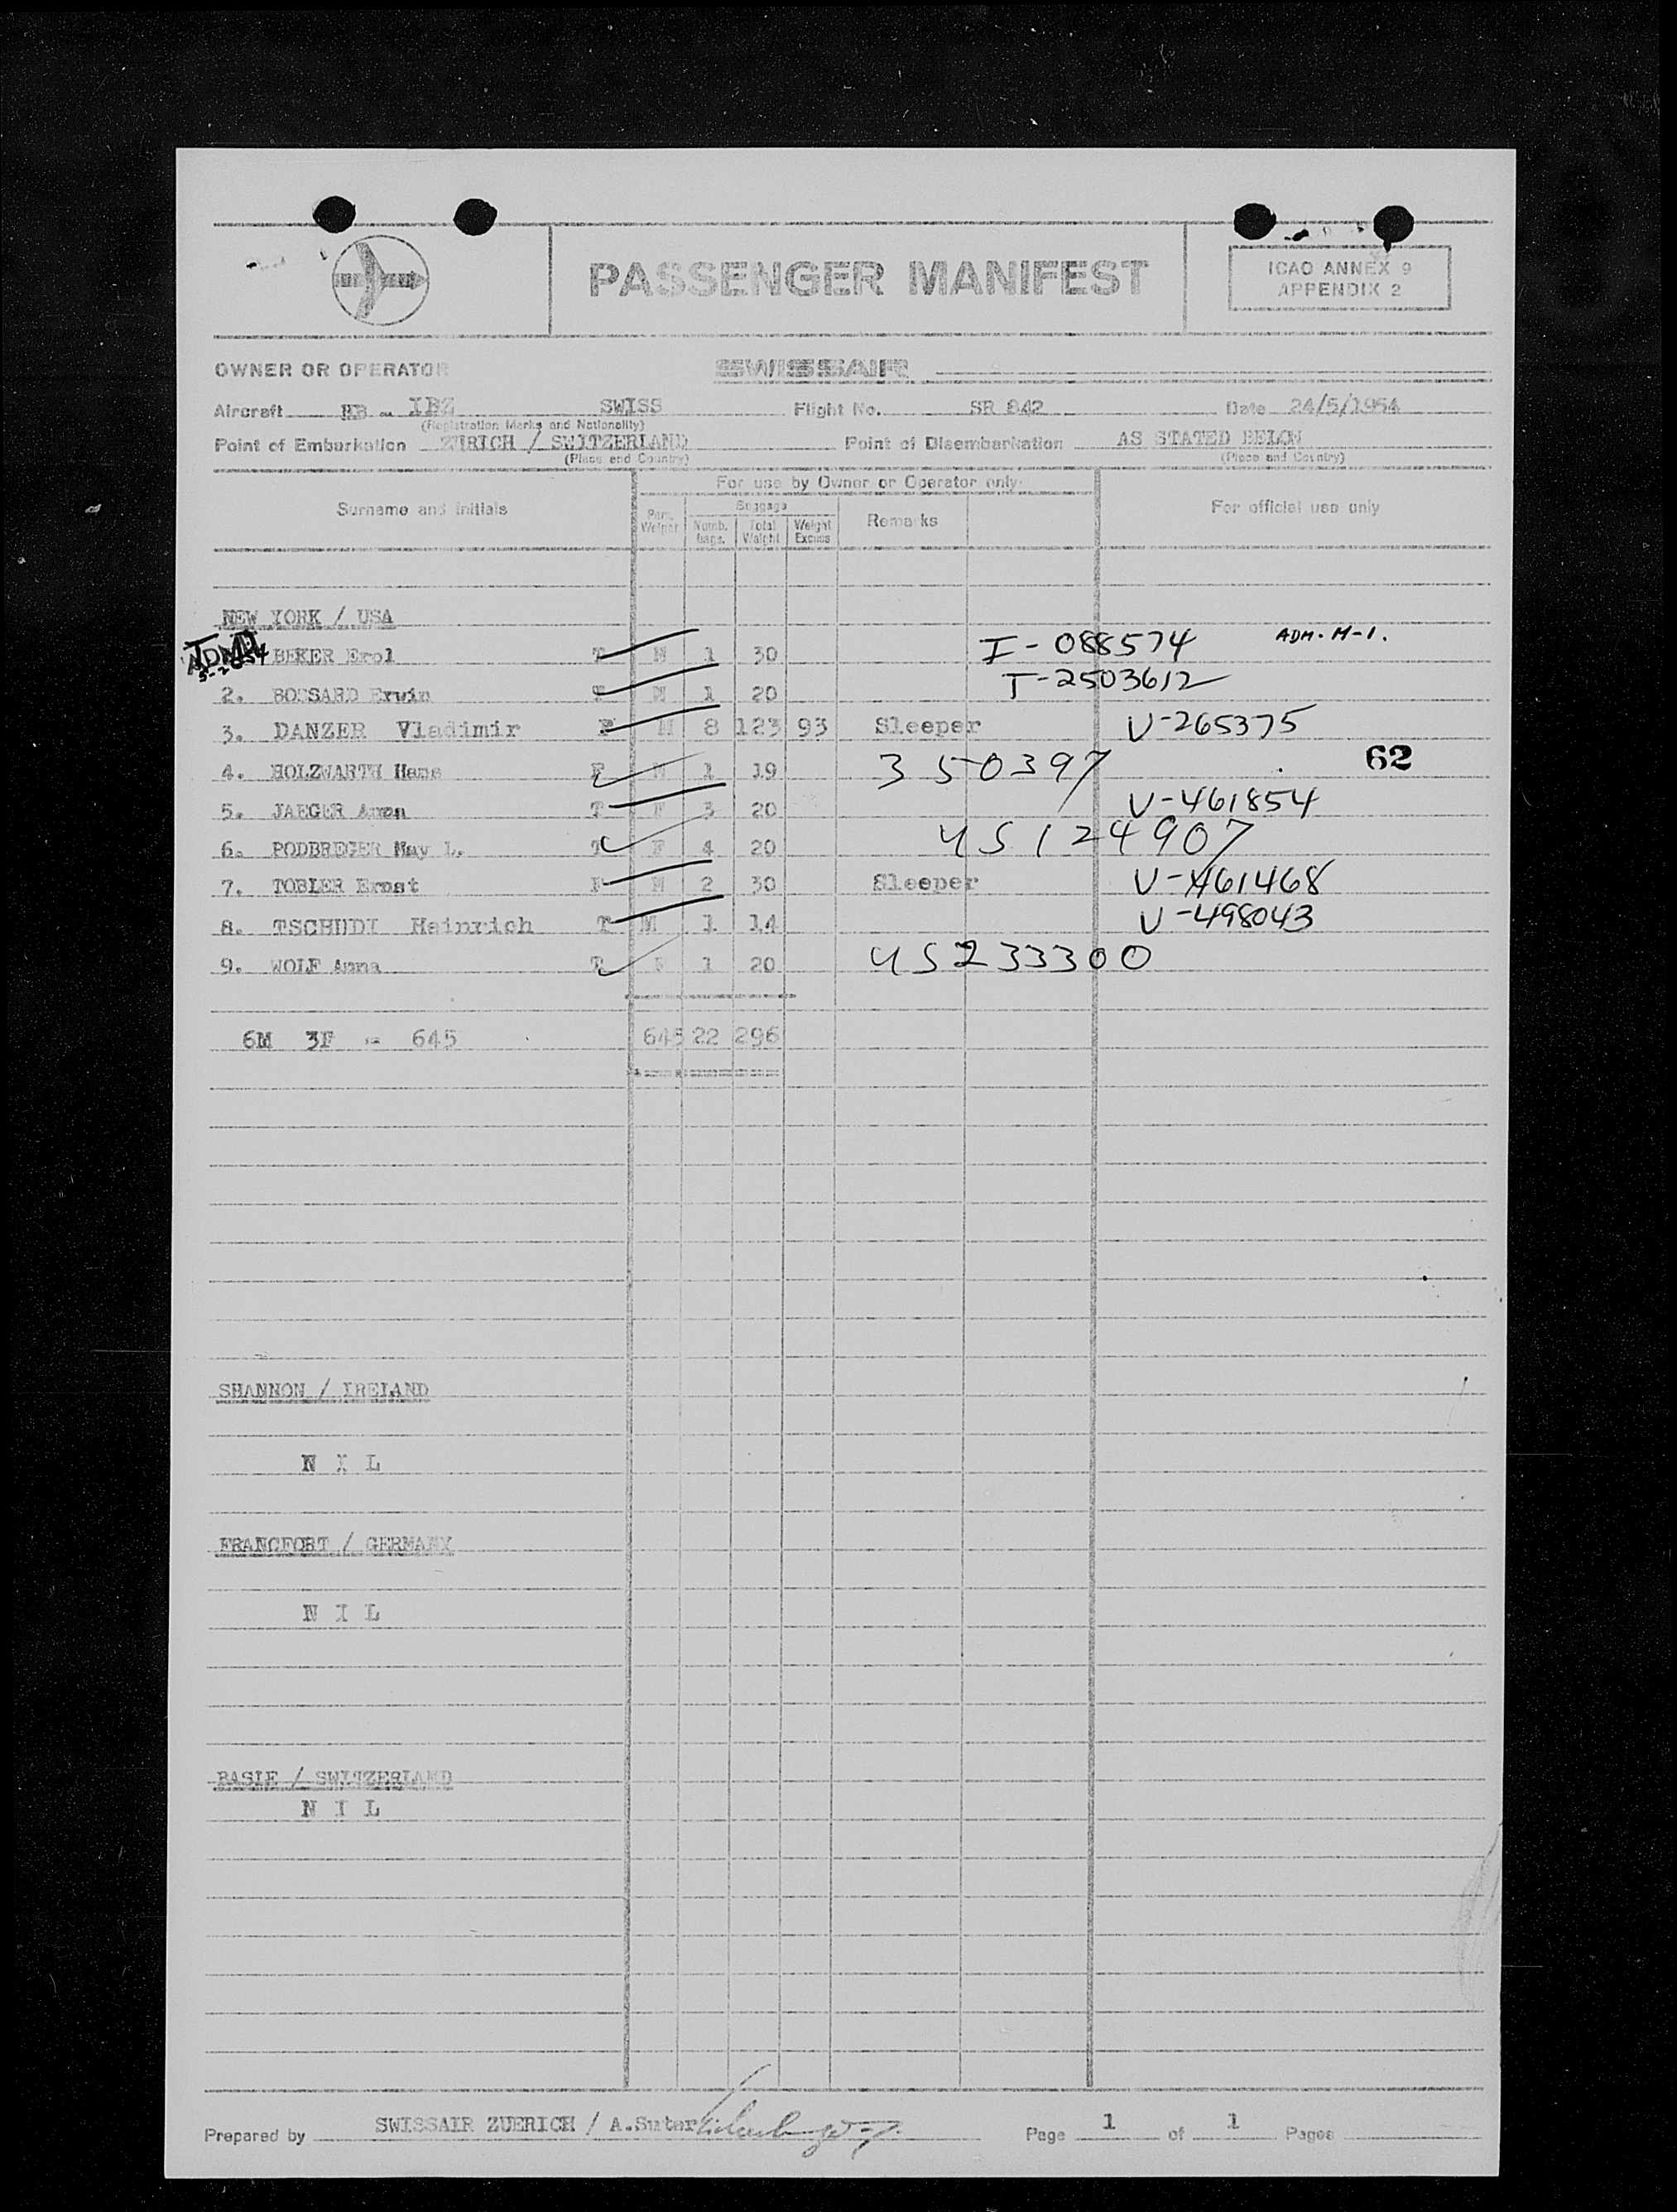 PASSENGER MANIFEST
ICAO ANNEX 9
APPENDIX 2
OWNER OR OPERATOR SWISSAIR
Aircraft HB - IBZ SWISS Flight No. SR 842 Date 24/5/1954
(Registration Marks and Nationality)
Point of Embarkation ZURICH / SWITZERLAND Point of Disembarkation AS STATED BELOW
(Place and Country) (Place and Country)
For use by Owner or Operator only
Surname and initials Baggage Remarks For official use only
Numb. bags. Total Weight Weight Excess
NEW YORK / USA
BEKER Erol T M 1 30 I-088574 ADM. M-1.
2. BOSSARD Erwin T M 1 20 T-2503612
3. DANZER Vladimir F M 8 123 93 Sleeper V-265375
62
4. HOLZWARTH Hans F M 1 19 350397
5. JAEGER Anna T F 3 20 V-461854
6. PODBREGER May L. T F 4 20 US 124907
7. TOBLER Ernst F M 2 30 Sleeper V-461468
8. TSCHUDI Heinrich T M 1 14 V-498043
9. WOLF Anna T F 1 20 US 233300
6M 3F = 645 645 22 296
SHANNON / IRELAND
N I L
FRANCFORT / GERMANY
N I L
BASLE / SWITZERLAND
N I L
Prepared by SWISSAIR ZUERICH / A.Suter Page 1 of 1 Pages